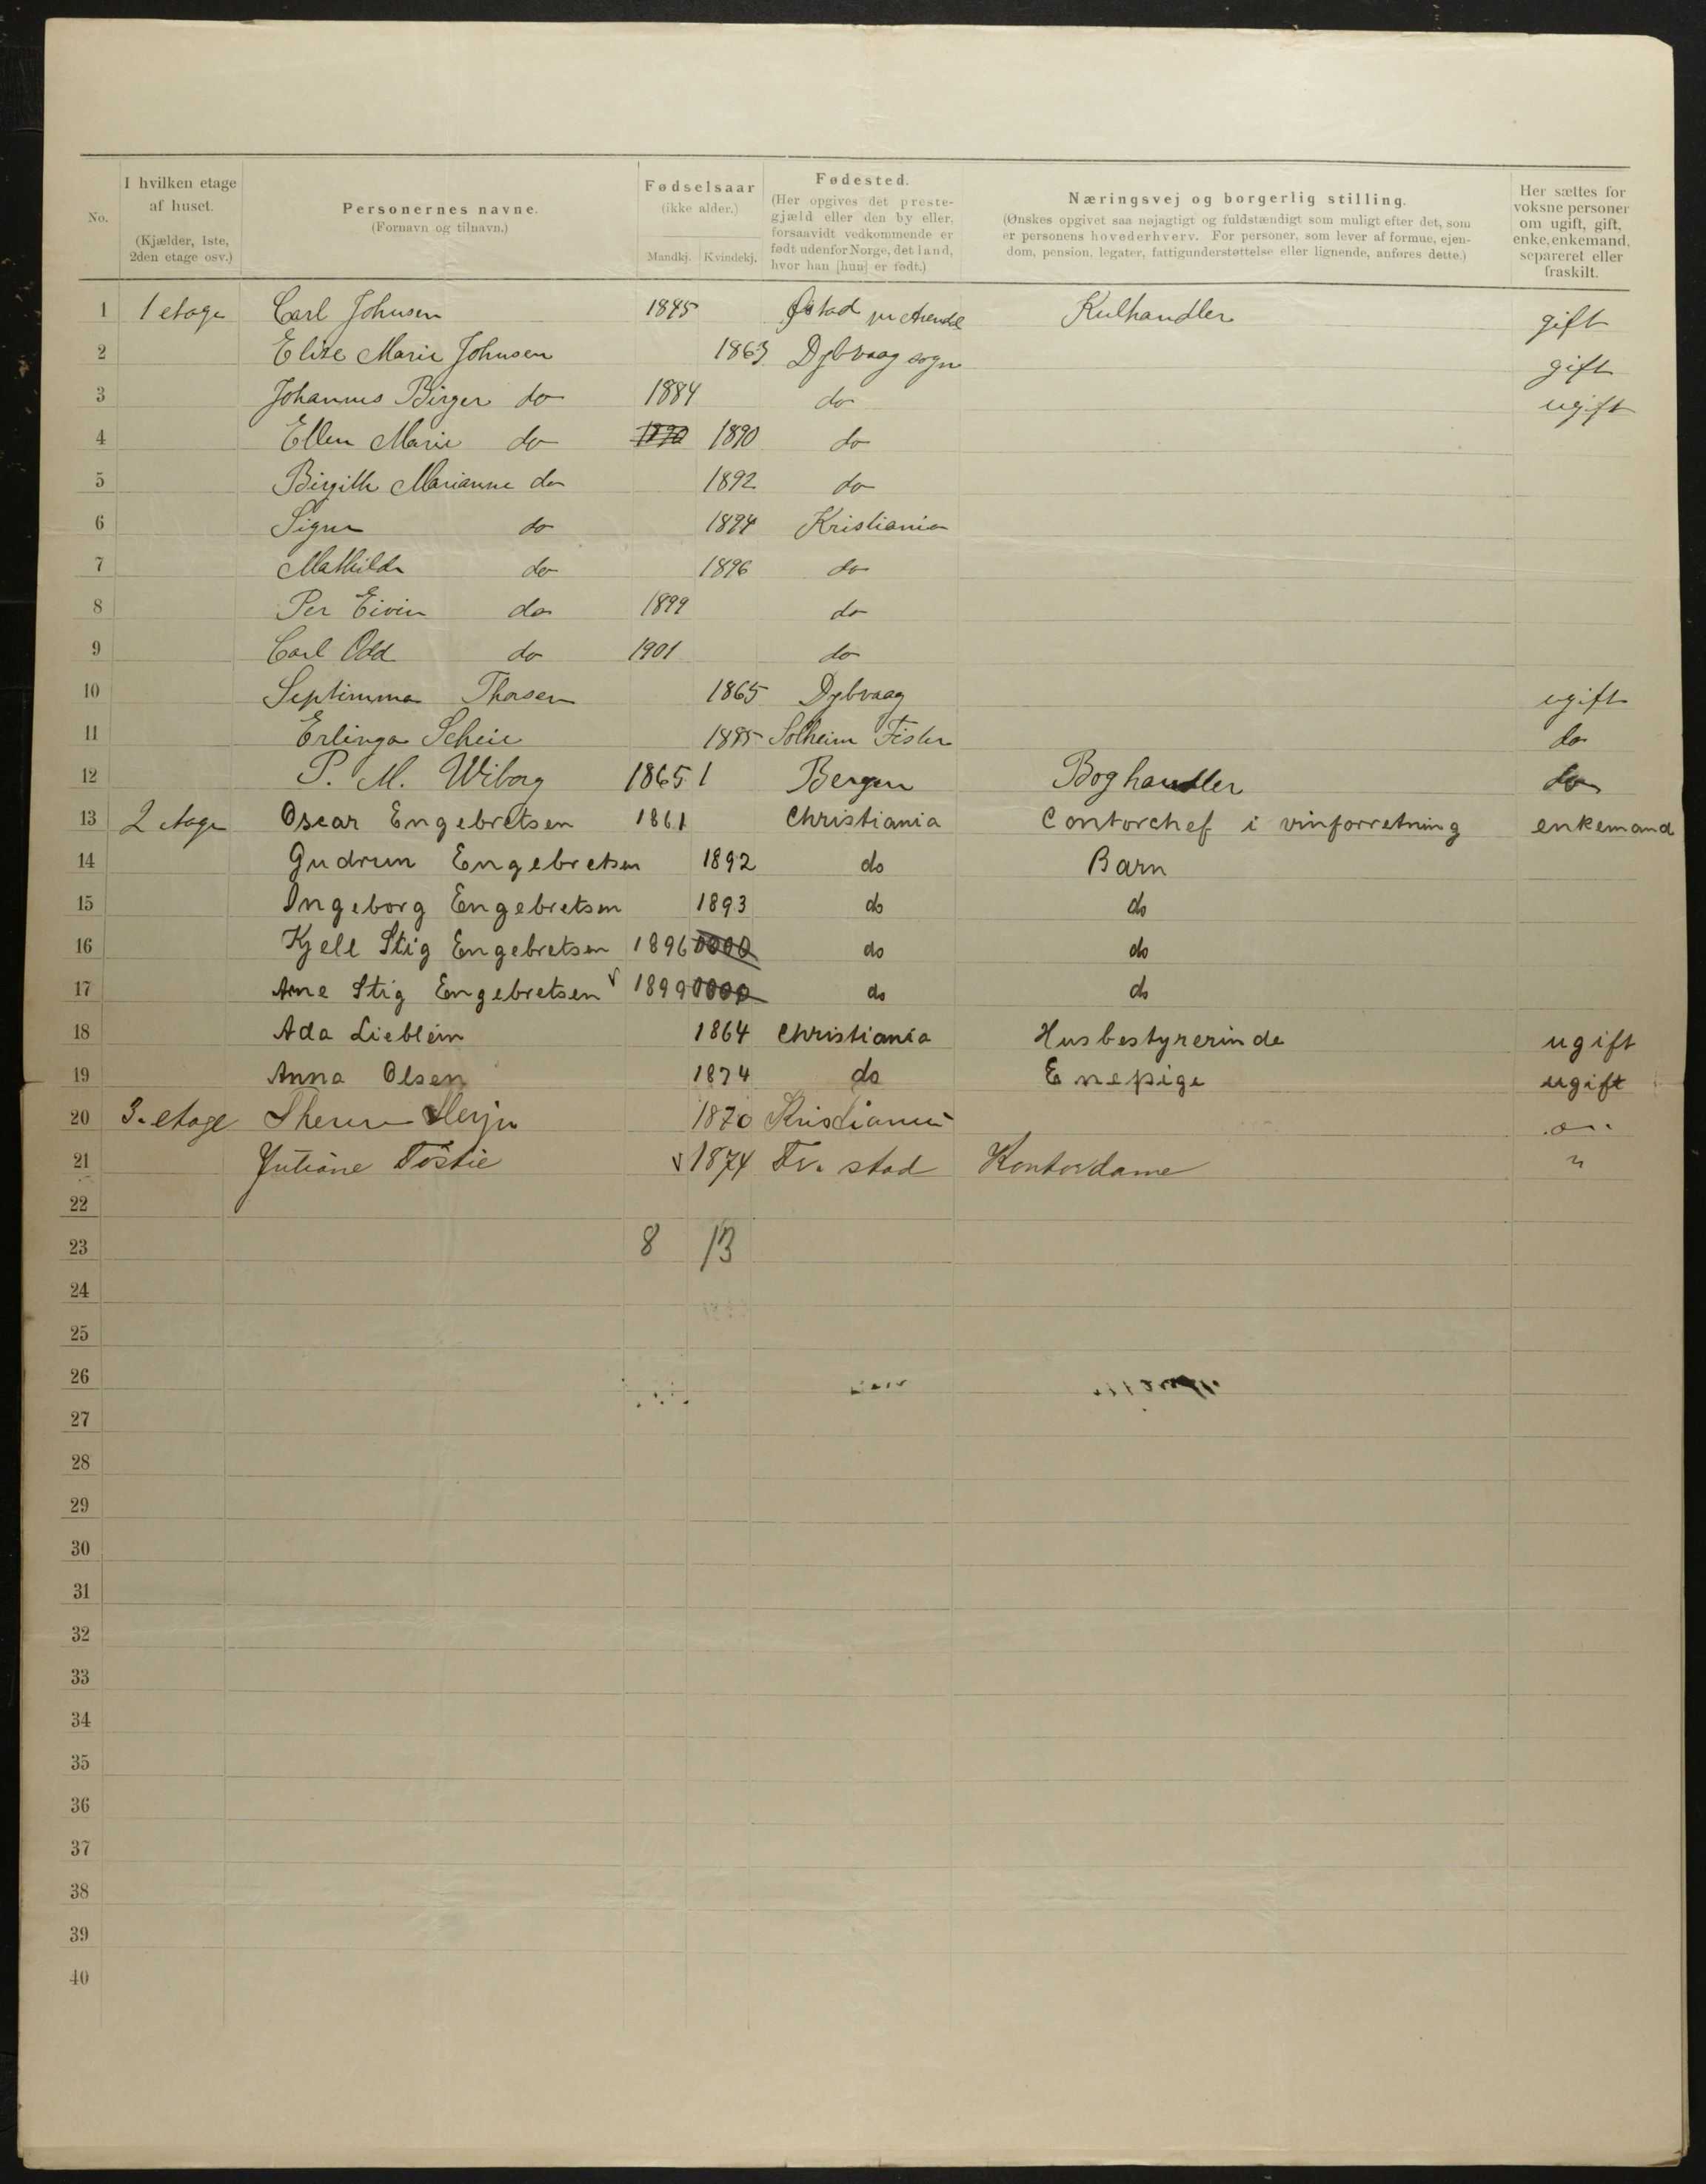 No. I hvilken etage af huset. (Kjælder, 1ste, 2den etage osv.) Personernes navne. (Fornavn og tilnavn.) Fødselsaar (ikke alder.) Mandkj. Kvindekj. Fødested. (Her opgives det prestegjæld eller den by eller, forsaavidt vedkommende er født udenfor Norge, det land, hvor han [hun] er født.) Næringsvej og borgerlig stilling. (Ønskes opgivet saa nøjagtigt og fuldstændigt som muligt efter det, som er personens hovederhverv. For personer, som lever af formue, ejendom, pension, legater, fattigunderstøttelse eller lignende, anføres dette.) Her sættes for voksne personer om ugift, gift, enke, enkemand, separeret eller fraskilt.
1 1 etage Carl Johnsen 1845 Kulhandler gift
2 Elise Marie Johnsen 1863 Dybvaag sogn gift
3 Johannes Birger do 1884 do ugift
4 Ellen Marie do 1890 1890 do
5 Birgith Marianne do 1892 do
6 Signe do 1894 Kristiania
7 Mathilde do 1896 do
8 Per Eivin do 1899 do
9 Carl Odd do 1901 do
10 Septimma Thorsen 1865 Dybvaag ugift
11 Erlinga Scheie 1885 Solheim Fister do
12 P. M. Wiborg 1865 1 Bergen Boghandler do
13 2 etage Oscar Engebretsen 1861 Christiania Contorchef i vinforretning enkemand
14 Gudrun Engebretsen 1892 do Barn
15 Ingeborg Engebretsen 1893 do do
16 Kjell Stig Engebretsen 1896 0000 do do
17 Arne Stig Engebretsen 1899 0000 do do
18 Ada Lieblein 1864 Christiania Husbestyrerinde ugift
19 Anna Olsen 1874 do Enepige ugift
20 3. etage 1870 Kristiania
21 Juliane Tostie 1874 Fr. stad Kontordame "
22
23 8 13
24
25
26
27
28
29
30
31
32
33
34
35
36
37
38
39
40